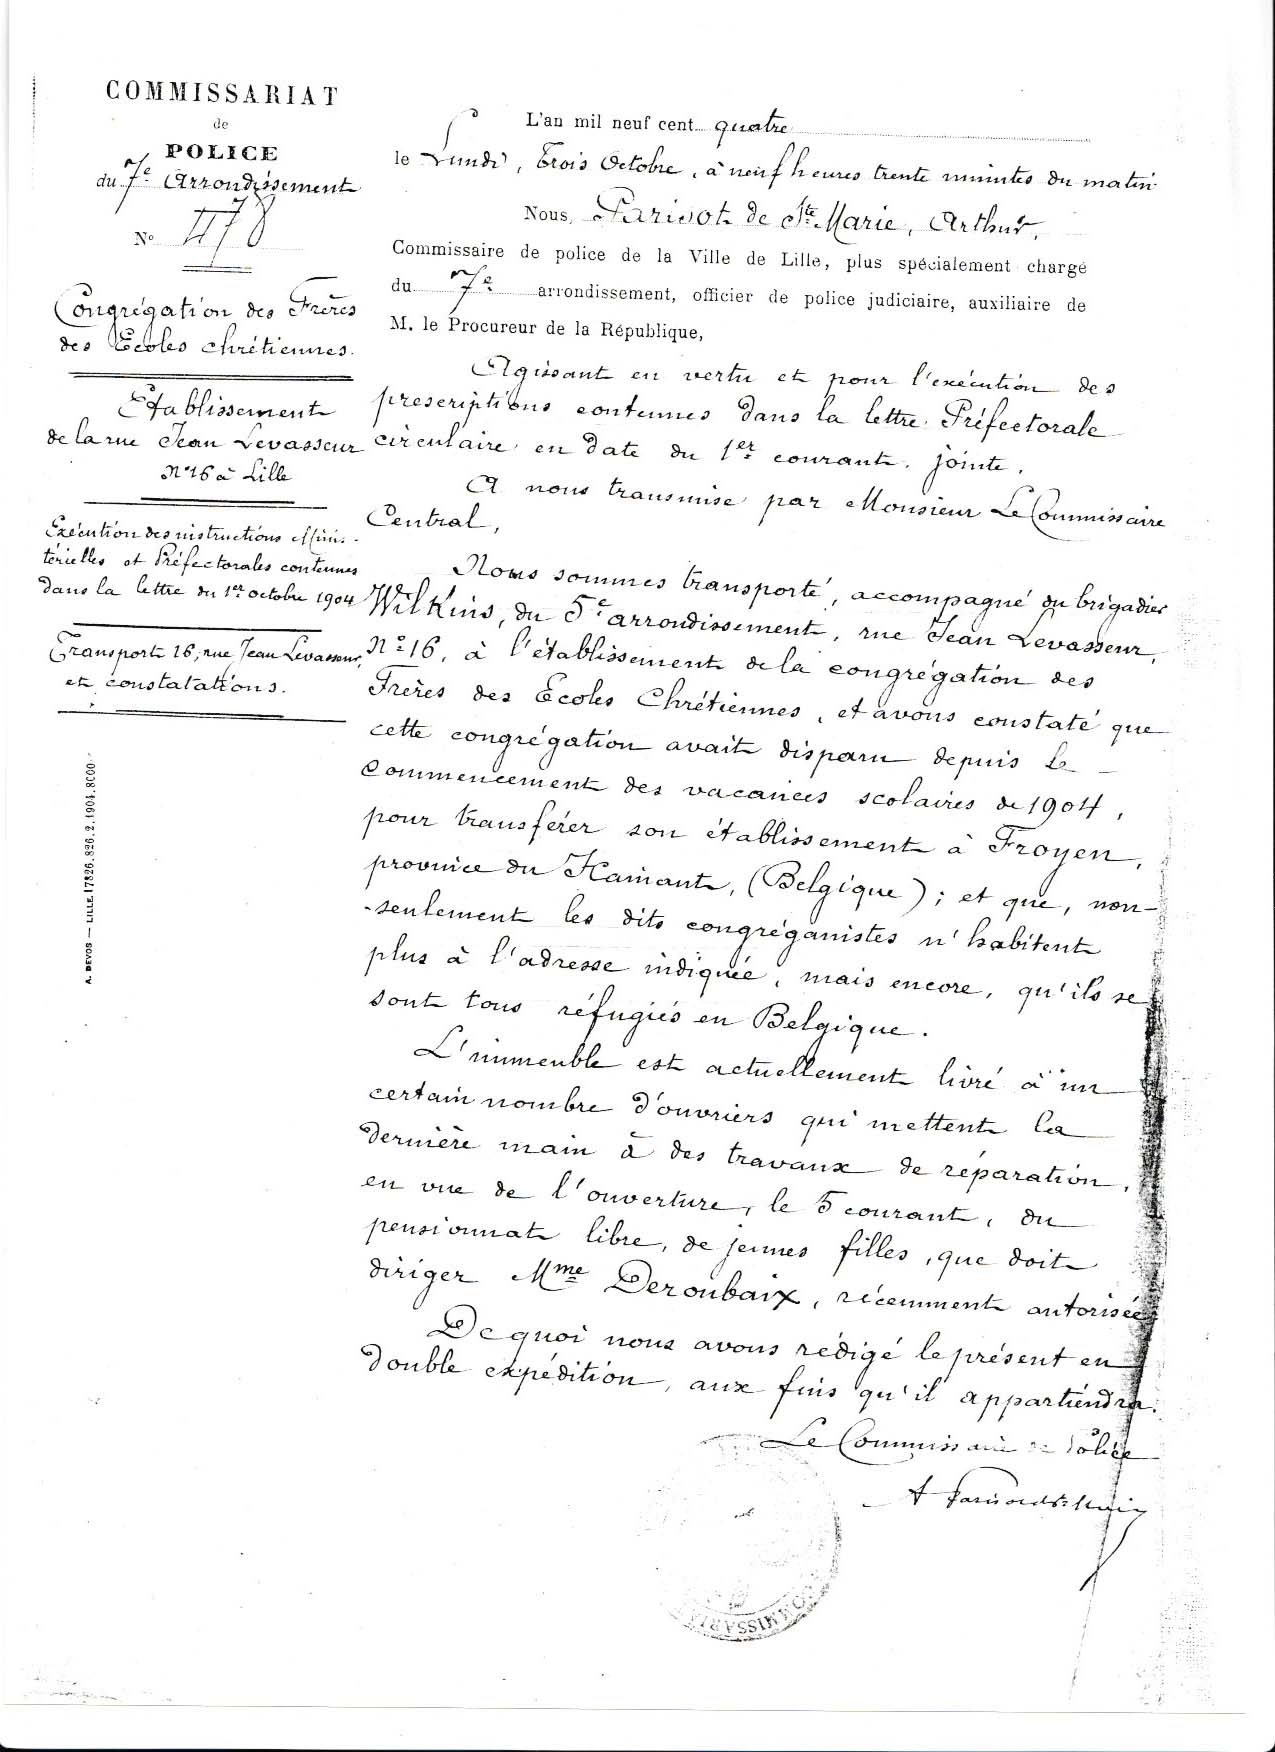 COMMISSARIAT
de
POLICE
du 7e Arrondissement
No 478
Congrégation des Frères
des Ecoles chrétiennes.
Etablissement
de la rue Jean Levasseur
No 16 à Lille
Exécution des instructions Minis-
térielles et Préfectorales contenues
dans la lettre du 1er octobre 1904
Transport 16, rue Jean Levasseur,
et constatations.
A. DEVOS — LILLE. 17826.826.2.1904.8000
L'an mil neuf cent quatre
le Lundi, trois Octobre, à neuf heures trente minutes du matin
Nous, Parisot de Ste Marie, Arthur,
Commissaire de police de la Ville de Lille, plus spécialement chargé
du 7e arrondissement, officier de police judiciaire, auxiliaire de
M. le Procureur de la République,
Agissant en vertu et pour l'exécution des
prescriptions contenues dans la lettre Préfectorale
circulaire en date du 1er courant, jointe,
A nous transmise par Monsieur Le Commissaire
Central,
Nous sommes transporté, accompagné du brigadier
Wilkins, du 5e arrondissement, rue Jean Levasseur,
No 16, à l'établissement de la congrégation des
Frères des Ecoles Chrétiennes, et avons constaté que
cette congrégation avait disparu depuis le
commencement des vacances scolaires de 1904,
pour transférer son établissement à Froyen,
province du Hainant, (Belgique); et que, non-
-seulement les dits congréganistes n'habitent
plus à l'adresse indiquée, mais encore, qu'ils se
sont tous réfugiés en Belgique.
L'immeuble est actuellement livré à un
certain nombre d'ouvriers qui mettent la
dernière main à des travaux de réparation,
en vue de l'ouverture, le 5 courant, du
pensionnat libre, de jeunes filles, que doit
diriger Mme Deroubaix, récemment autorisée
De quoi nous avons rédigé le présent en
double expédition, aux fins qu'il appartiendra.
Le Commissaire de Police
COMMISSARIA